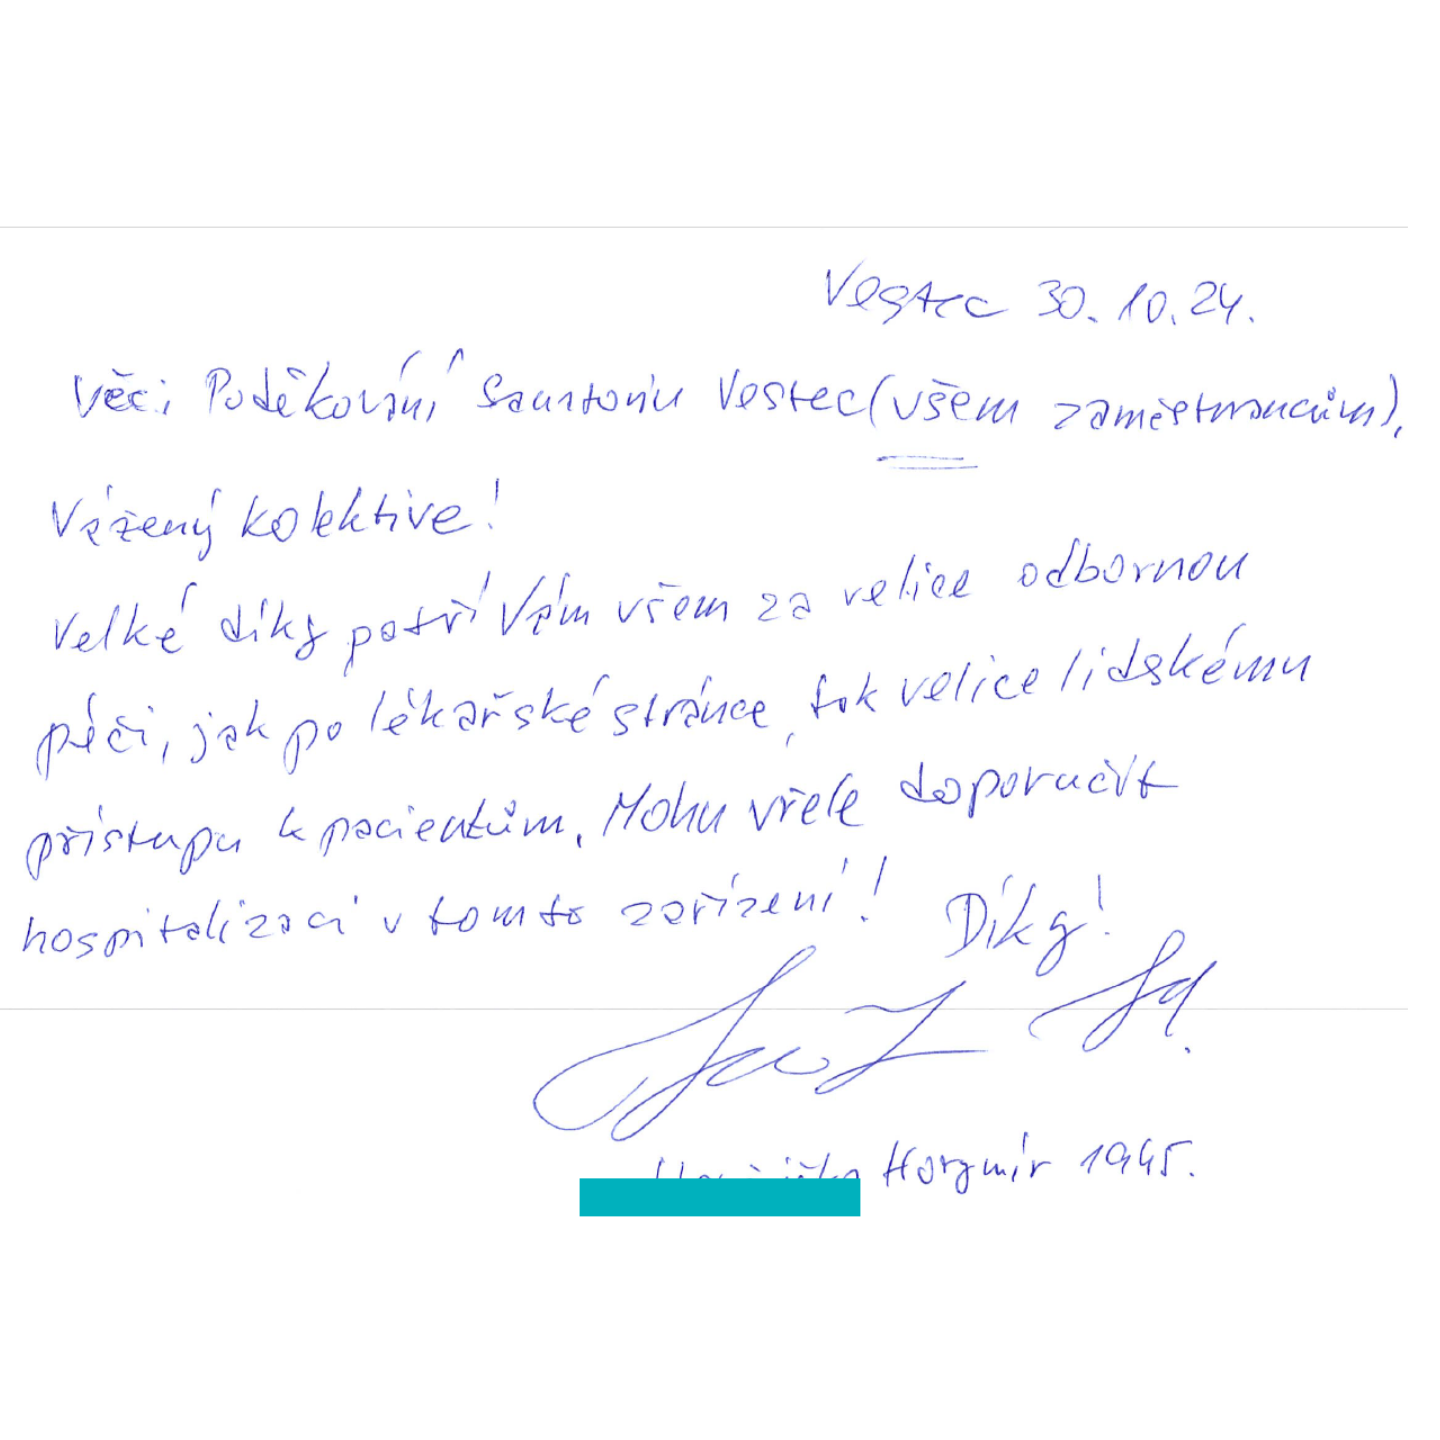 Vestec 30. 10. 24.
Věci Poděkování Sanatoriu Vestec (všem zaměstnancům),
Vážený kolektive!
Velké díky patří Vám všem za velice odbornou
péči, jak po lékařské stránce, tak velice lidskému
přístupu k pacientům. Mohu vřele doporučit
hospitalizaci v tomto zařízení! Díky!
Horymír 1945.